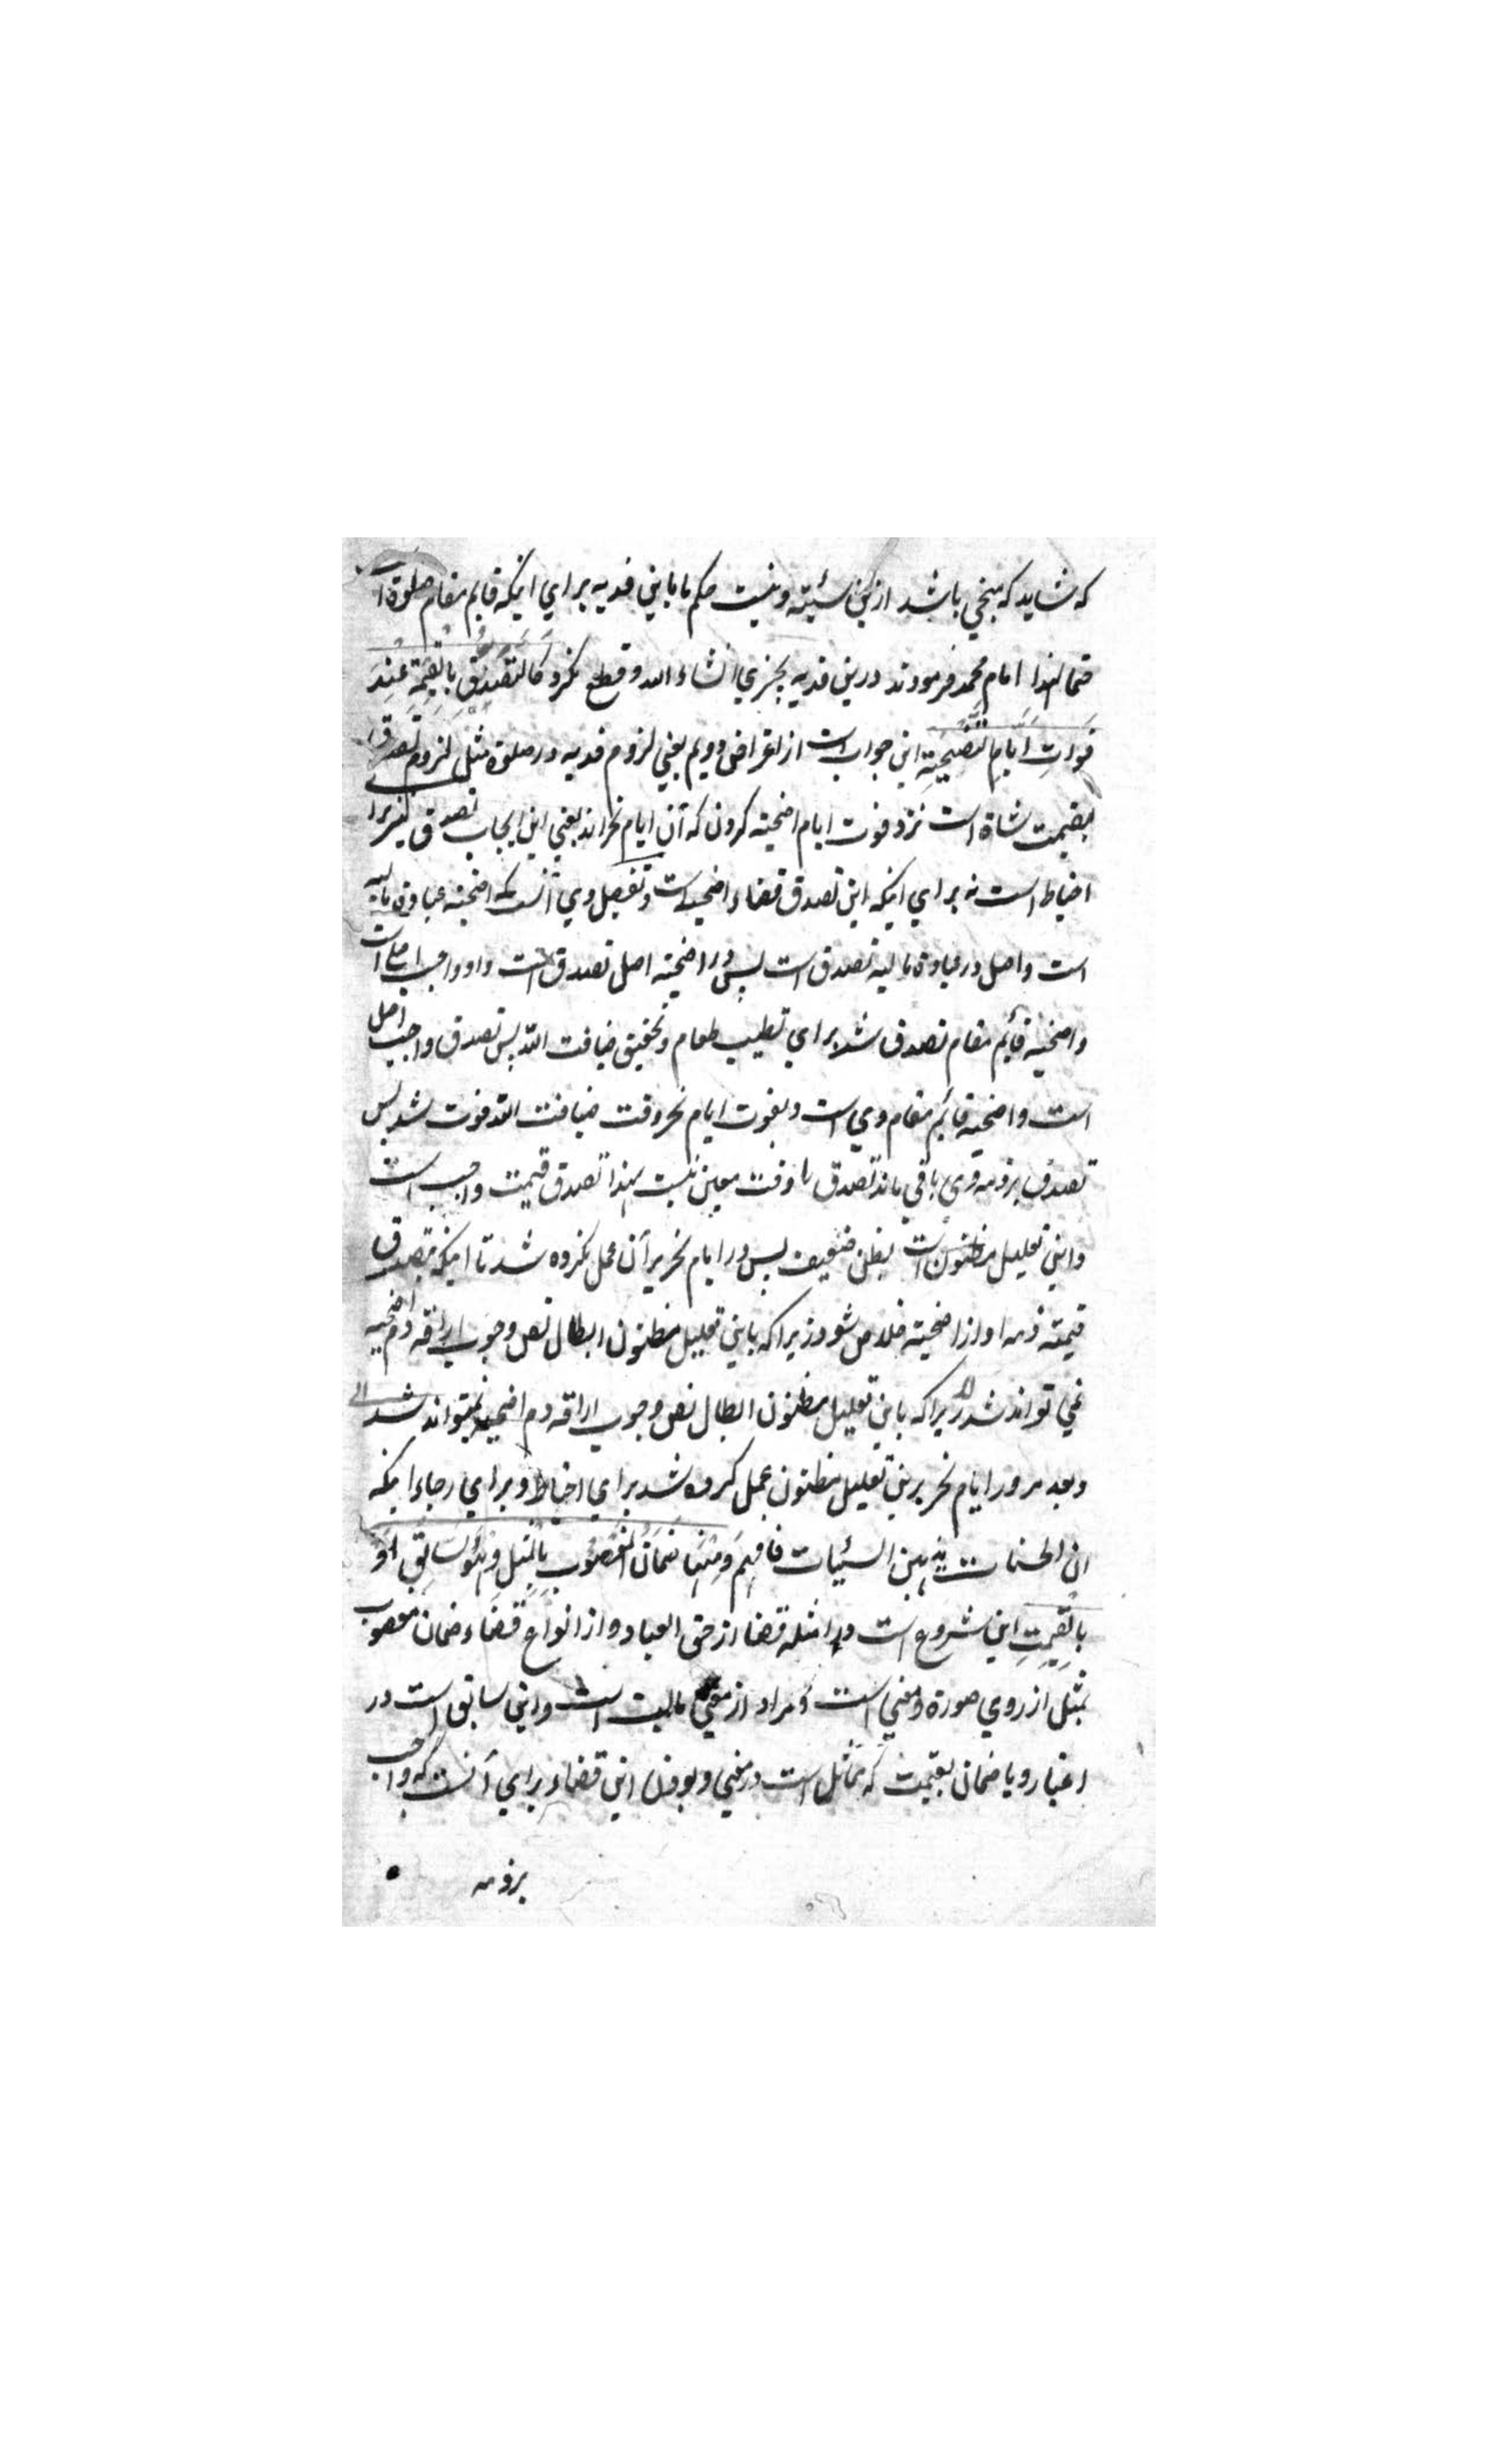 که شاید که منجی باشد ازین سئیته ونیست حکم ما باین فدیه برای اینکه قایم مقام صلوة است
حتما لهذا امام محمد فرمودند درین فدیه یجزی انشاء الله وقطع نکرد کَالتَصَدُّقِ بِالْقِیمَةِ عِنْدَ
فَوَاتِ اَیَامِ التَضْحِیَةِ این جواب است از اعتراض دویم یعنی لزوم فدیه در صلوة مثل لزوم تصدق
بقیمت شاة است نزد فوت ایام اضحیته کردن که آن ایام نحر اند یعنی این ایجاب تصدق نیز برا
احتیاط است نه برای اینکه این تصدق قضاء اضحیه است وتفصیل وی آنست که اضحیته عبادة مالیه
است واصل در عبادة مالیه تصدق است پس در اضحیته اصل تصدق است واو واجب اصل است
واضحیته قایم مقام تصدق شد برای تطییب طعام وتحقیق ضیافت الله پس تصدق واجب اصل
است واضحیه قایم مقام وی است وبفوت ایام نحر وقت ضیافت الله فوت شد پس
تصدق بر ذمه وی باقی ماند تصدق را وقت معین نیست لهذا تصدق قیمت واجب است
واین تعلیل مظنون است بظن ضعیف پس در ایام نحر بر آن عمل نکرده شد تا اینکه بتصدق
قیمته ذمه او از اضحیته خلاص شود زیراکه باین تعلیل مظنون ابطال نص وجوب اراقه دم اضحیه
نمی تواند شد زیراکه باین تعلیل مظنون ابطال نص وجوب اراقه دم اضحیه نمیتواند شد
وبعد مرور ایام نحر برین تعلیل مظنون عمل کرده شد برای احتیاط وبرای رجاء اینکه
ان الحسنات یذهبن السئیات فافهم وَمِنْهَا ضَمَانُ الْمَغْصُوبِ بِالْمِثْلِ وَهُوَ السَابِقُ اَوْ
بِالْقِیمَتِ این شروع است در امثله قضا از حق العباد واز انواع قضاء ضمان مغصوب
بمثل از روی صورة ومعنی است ومراد از معنی مالیت است واین سابق است در
اعتبار ویا ضمان بقیمت که مماثل است در معنی وبودن این قضاء برای آنست که واجب
بر ذمه